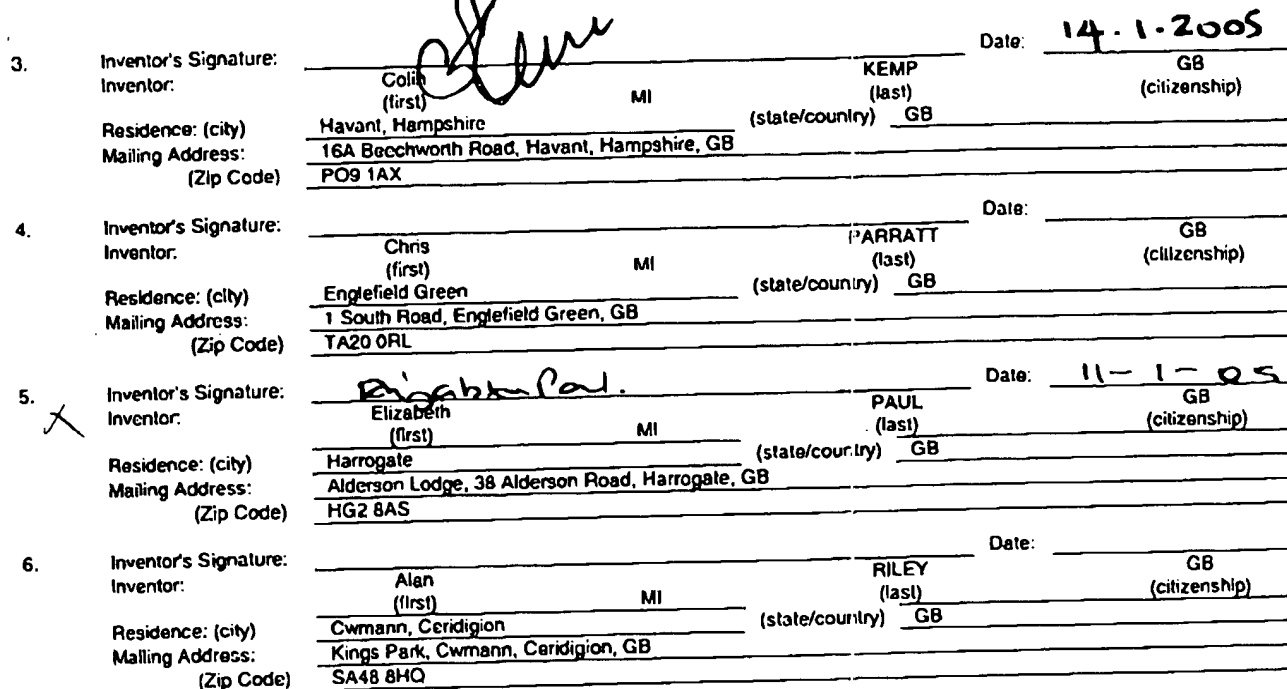 Date: 14.1.2005
3. Inventor's Signature:
Inventor: Colin KEMP GB
(first) MI (last) (citizenship)
Residence: (city) Havant, Hampshire (state/country) GB
Mailing Address: 16A Beechworth Road, Havant, Hampshire, GB
(Zip Code) PO9 1AX
Date:
4. Inventor's Signature:
Inventor: Chris PARRATT GB
(first) MI (last) (citizenship)
Residence: (city) Englefield Green (state/country) GB
Mailing Address: 1 South Road, Englefield Green, GB
(Zip Code) TA20 0RL
5. Inventor's Signature: Elizabeth Paul. Date: 11-1-05
X Inventor: Elizabeth PAUL GB
(first) MI (last) (citizenship)
Residence: (city) Harrogate (state/country) GB
Mailing Address: Alderson Lodge, 38 Alderson Road, Harrogate, GB
(Zip Code) HG2 8AS
Date:
6. Inventor's Signature:
Inventor: Alan RILEY GB
(first) MI (last) (citizenship)
Residence: (city) Cwmann, Ceridigion (state/country) GB
Mailing Address: Kings Park, Cwmann, Ceridigion, GB
(Zip Code) SA48 8HQ